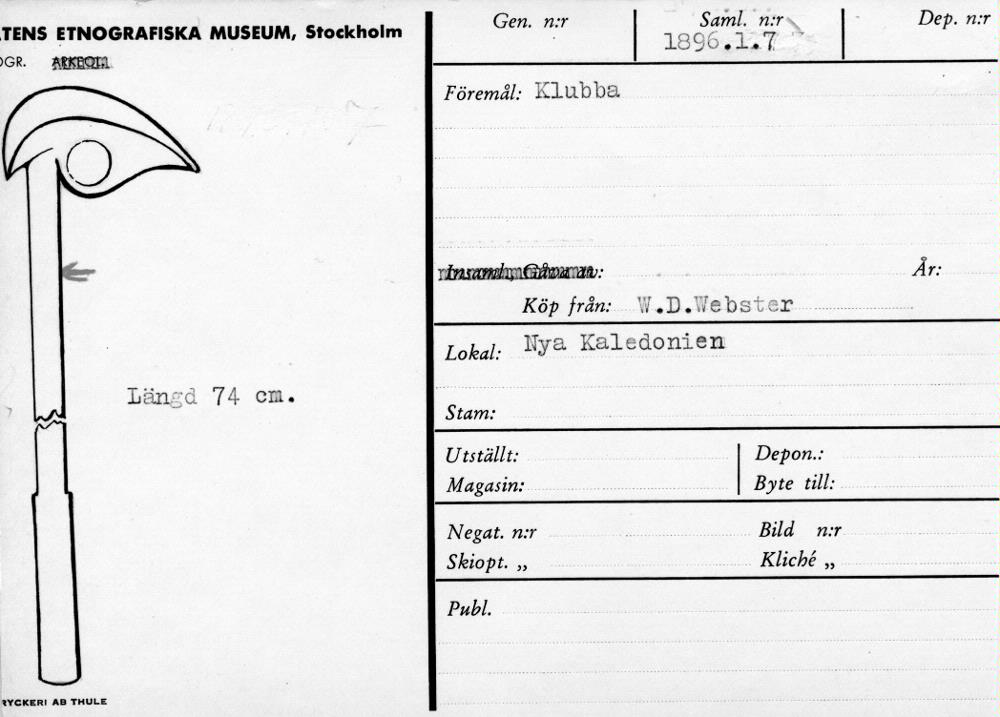 TENS ETNOGRAFISKA MUSEUM, Stockholm
OGR. ARKEOL.
Längd 74 cm.
RYCKERI AB THULE
Gen. n:r
Saml. n:r
1896.1.7
Dep. n:r
Föremål: Klubba
Insaml., Gåva av:
År:
Köp från: W.D.Webster
Lokal: Nya Kaledonien
Stam:
Utställt:
Depon.:
Magasin:
Byte till:
Negat. n:r
Bild n:r
Skiopt. „
Kliché „
Publ.